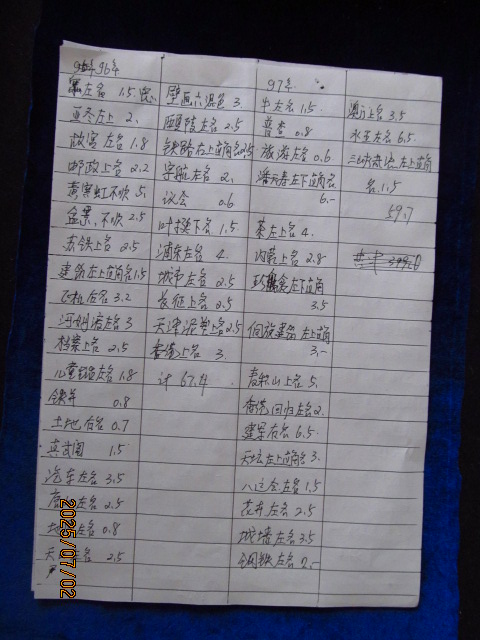 96年
左名 1.5
亚冬左上 2.
故宫 左名 1.8
邮政上名 2.2
黄宾虹不吹 5.
金票,不吹 2.5
苏铁上名 2.5
建筑左上直角名1.5
飞机左名 3.2
河姆渡左名 3
档案上名 2.5
儿童 左名 1.8
铁年 0.8
土地 右名 0.7
真武阁 1.5
汽车左名 3.5
左名 2.5
左名 0.8
天 左名 2.5
壁画六混色 3.
西夏陵左名 2.5
铁路右上直角名2.5
左名 2.
议会 0.6
叶挺下名 1.5
浦东左名 4.
城市左名 2.5
长征上名 2.5
天津泥塑上名2.5
香港上名 3.
计 67.4
97年
牛左名 1.5
普查 0.8
旅游左名 0.6
潘天寿左下直角名
6.-
茶左上名 4.
内蒙上名 2.8
珍禽左下直角
3.5
侗族建筑 左上直角
3.-
麦积山上名 5.
香港回归左名2.
建军右名 6.5
天坛左上直角名3.
八运会左名 1.5
花卉左名 2.5
城墙左名3.5
钢铁左名 2.-
澳门上名 3.5
水浒左名 6.5
左上直角
名1.5
59.7
2025/07/02